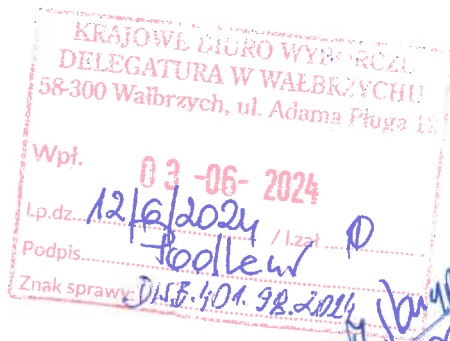 KRAJOWE BIURO WYBORCZE
DELEGATURA W WAŁBRZYCHU
58-300 Wałbrzych, ul. Adama Pługa 12
Wpł. 03 -06- 2024
L.p.dz. 12/6/2024 / l.zał. 0
Podpis
Znak sprawy DWB.401.98.2024